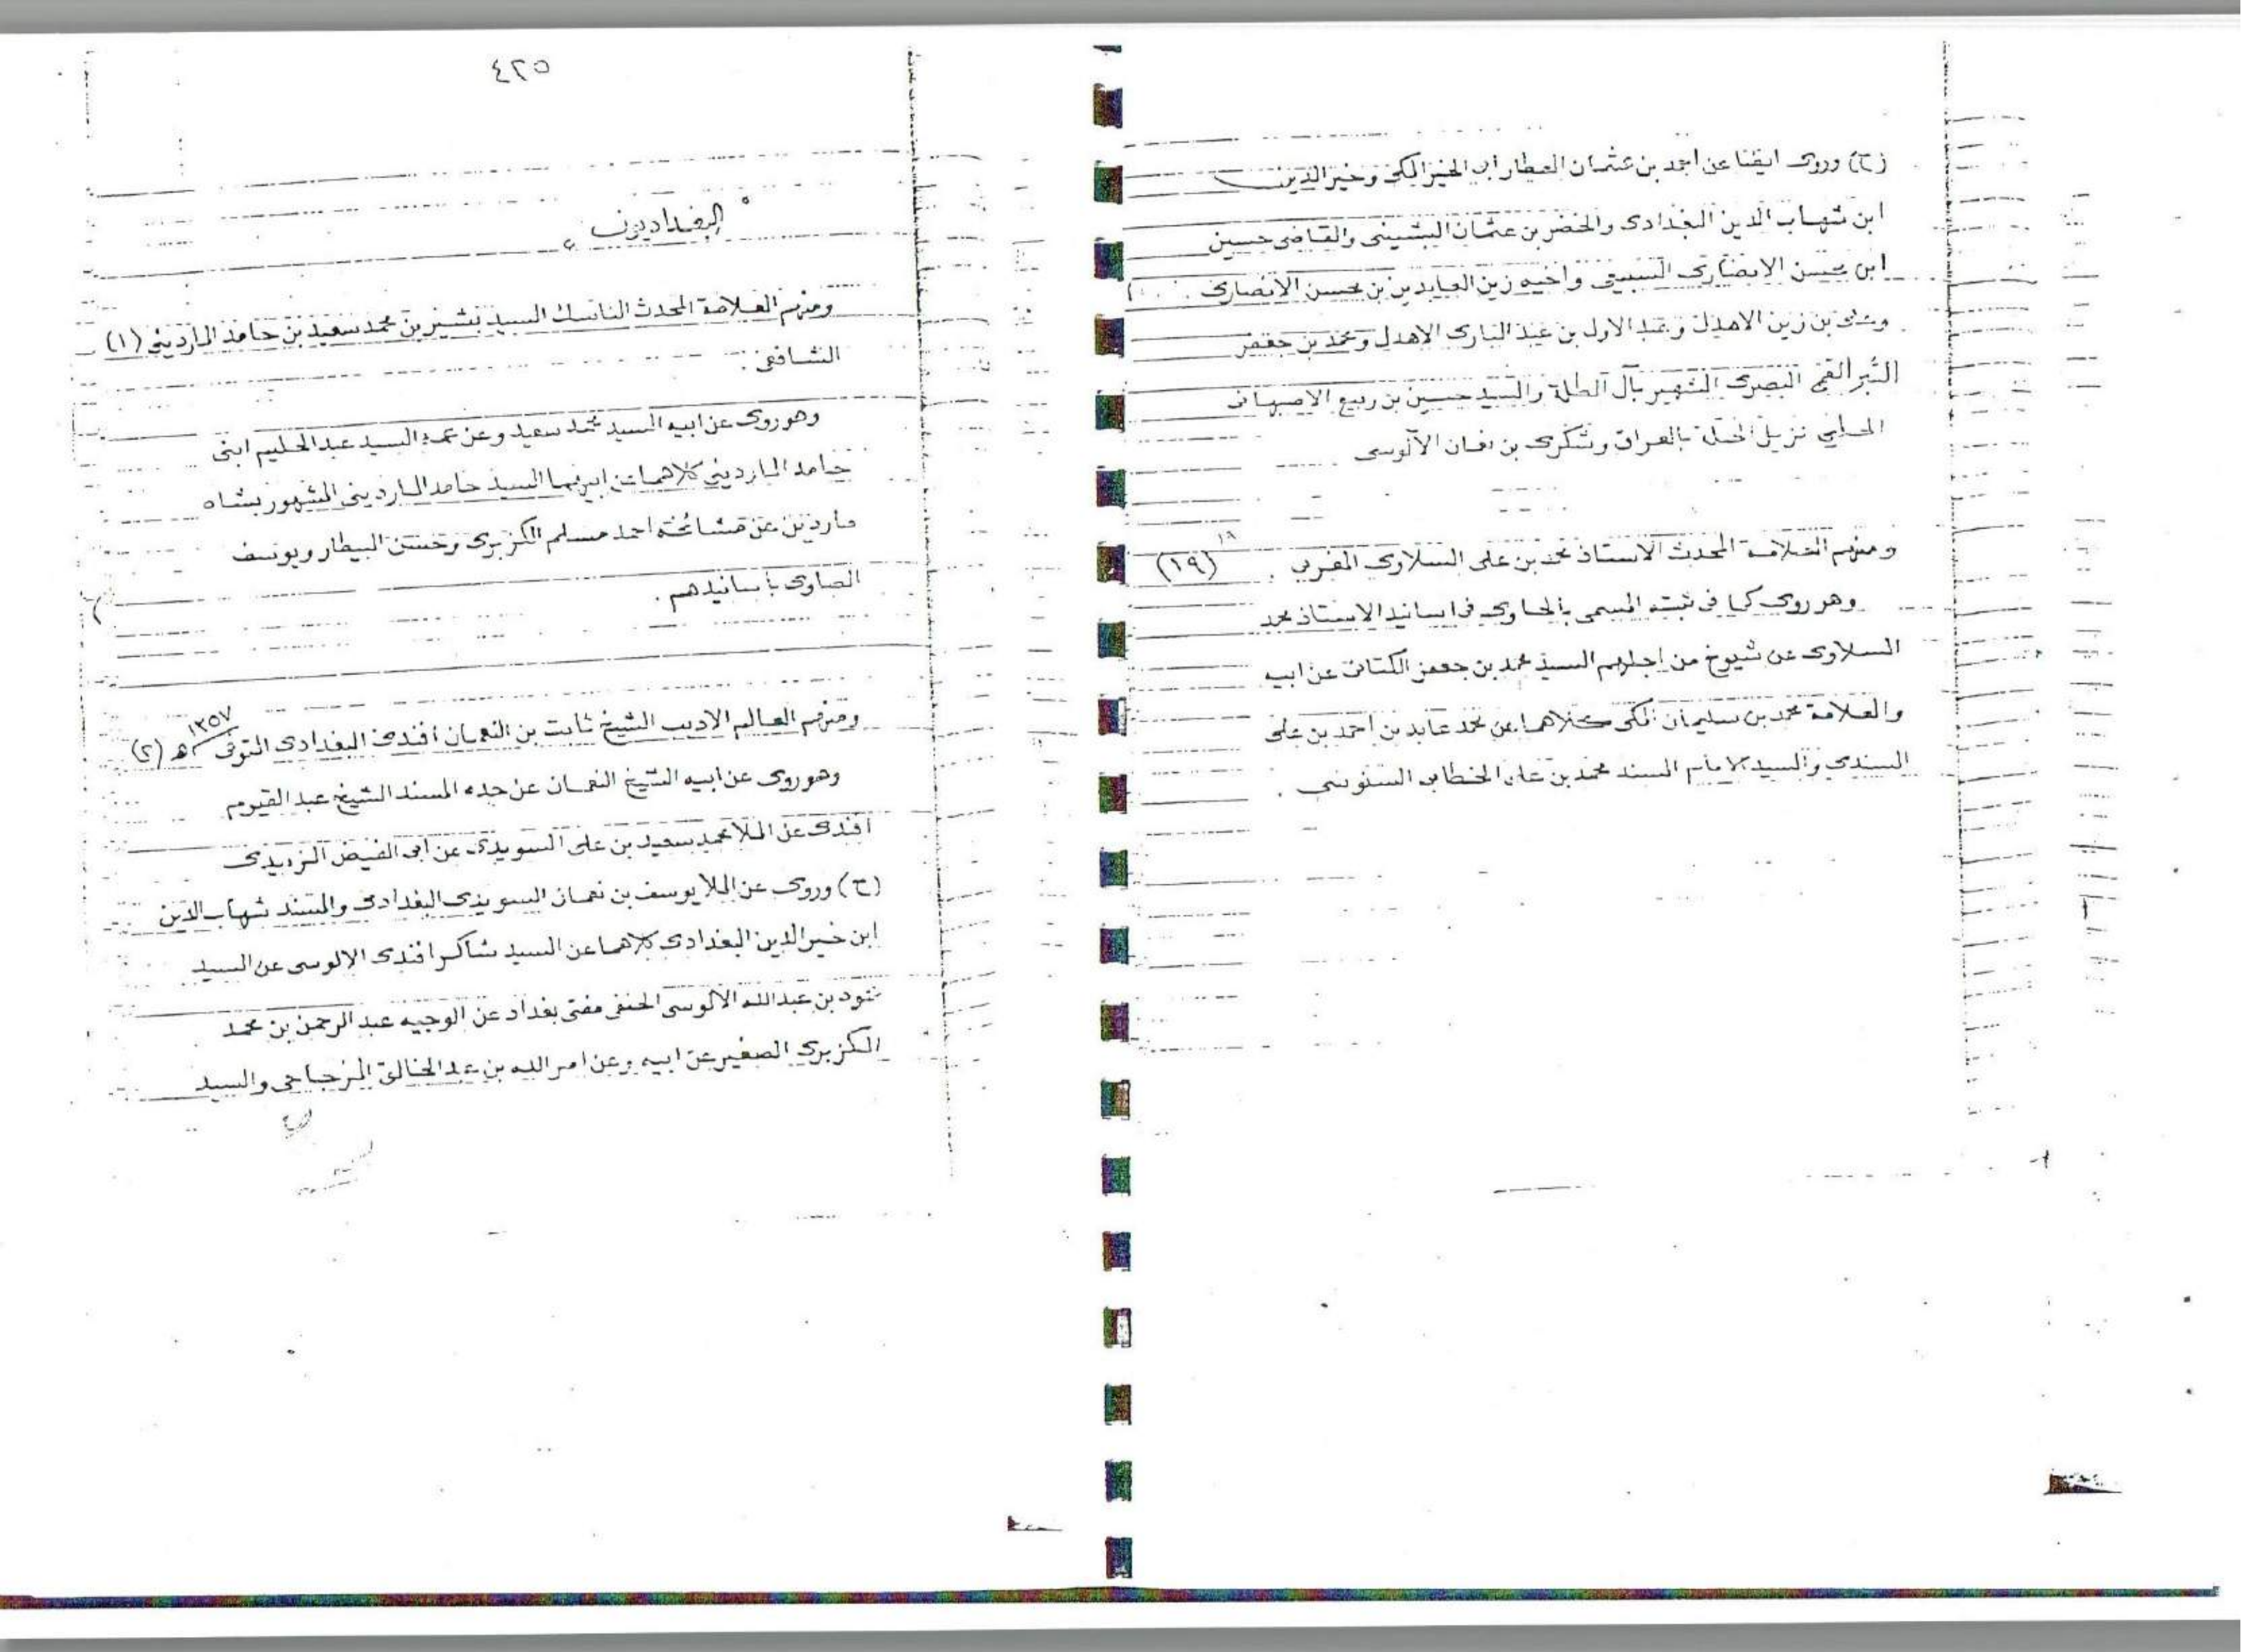 (ح) وروى ايضا عن احمد بن عثمان العطار ابى الخير المكى وخير الدين
ابن شهاب الدين البغدادى والخضر بن عثمان والقاضى حسين
ابن محسن الانصارى السبيعى واخيه زين العابدين بن محسن الانصارى
وعلى بن زين الاهدل وعبد الاول بن عبد البارى الاهدل ومحمد بن جعفر
القمى البصرى الشهير بآل الطلة والسيد حسين بن ربيع الاصبهانى
نزيل الحلة بالعراق وشكرى بن نعمان الآلوسى
ومنهم العلامة المحدث الاستاذ محمد بن على السلاوى المغربى . (١٩) ١٨
وهو روى كما فى ثبته المسمى بالحاوى فى اسانيد الاستاذ محمد
السلاوى عن شيوخ من اجلهم السيد محمد بن جعفر الكتانى عن ابيه
والعلامة محمد بن سليمان المكى كلاهما عن محمد عابد بن احمد بن على
السندى والسيد الامام المسند محمد بن على الخطابى السنوسى .
٤٢٥
البغداديون
ومنهم العلامة المحدث الناسك السيد بشير بن محمد سعيد بن حامد الماردينى (١)
الشافعى :
وهو روى عن ابيه السيد محمد سعيد وعن عمه السيد عبد الحليم ابنى
حامد الماردينى كلاهما عن ابيهما السيد حامد الماردينى المشهور بشاه
ماردين عن مشائخه احمد مسلم الكزبرى وحسن البيطار ويوسف
الصاوى بأسانيدهم .
ومنهم العالم الاديب الشيخ ثابت بن النعمان أفندى البغدادى المتوفى ١٣٥٧ هـ (٢)
وهو روى عن ابيه الشيخ النعمان عن جده المسند الشيخ عبد القيوم
افندى عن الملا محمد سعيد بن على السويدى عن ابى الفيض الزبيدى
(ح) وروى عن الملا يوسف بن نعمان السويدى البغدادى والمسند شهاب الدين
ابن خير الدين البغدادى كلاهما عن السيد شاكر افندى الالوسى عن السيد
محمود بن عبد الله الآلوسى الحنفى مفتى بغداد عن الوجيه عبد الرحمن بن محمد
الكزبرى الصغير عن ابيه وعن امر الله بن عبد الخالق المزجاجى والسيد